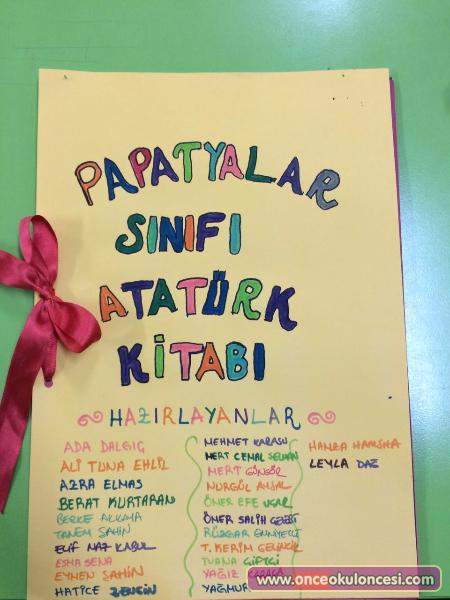 PAPATYALAR
SINIFI
ATATÜRK
KİTABI
HAZIRLAYANLAR
ADA DALGIÇ
ALİ TUNA EHLİZ
AZRA ELMAS
BERAT KURTARAN
BERKE AKKAYA
TANEM ŞAHİN
ELİF NAZ KABUL
ESMA SENA
EYMEN ŞAHİN
HATİCE ZENGİN
MEHMET KARASU
MERT CEMAL SELMAN
MERT GÜNGÖR
NURGÜL AYSAL
ÖMER EFE UÇAR
ÖMER SALİH
RÜZGAR
T. KERİM GELİNCİK
TUANA ÇİFTÇİ
YAĞIZ KARACA
YAĞMUR
HAMZA
LEYLA DAĞ
www.onceokuloncesi.com